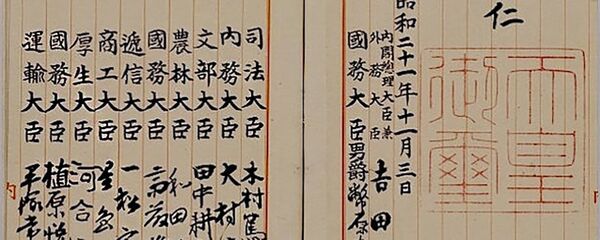 天皇
御璽
仁
昭和二十一年十一月三日
内閣總理大臣兼
外務大臣 吉田
國務大臣 男爵幣原
司法大臣 木村篤
内務大臣 大村
文部大臣 田中耕
農林大臣 和田
國務大臣
遞信大臣 一松定
商工大臣 星島
厚生大臣 河合
國務大臣 植原悦
運輸大臣 平塚常
内